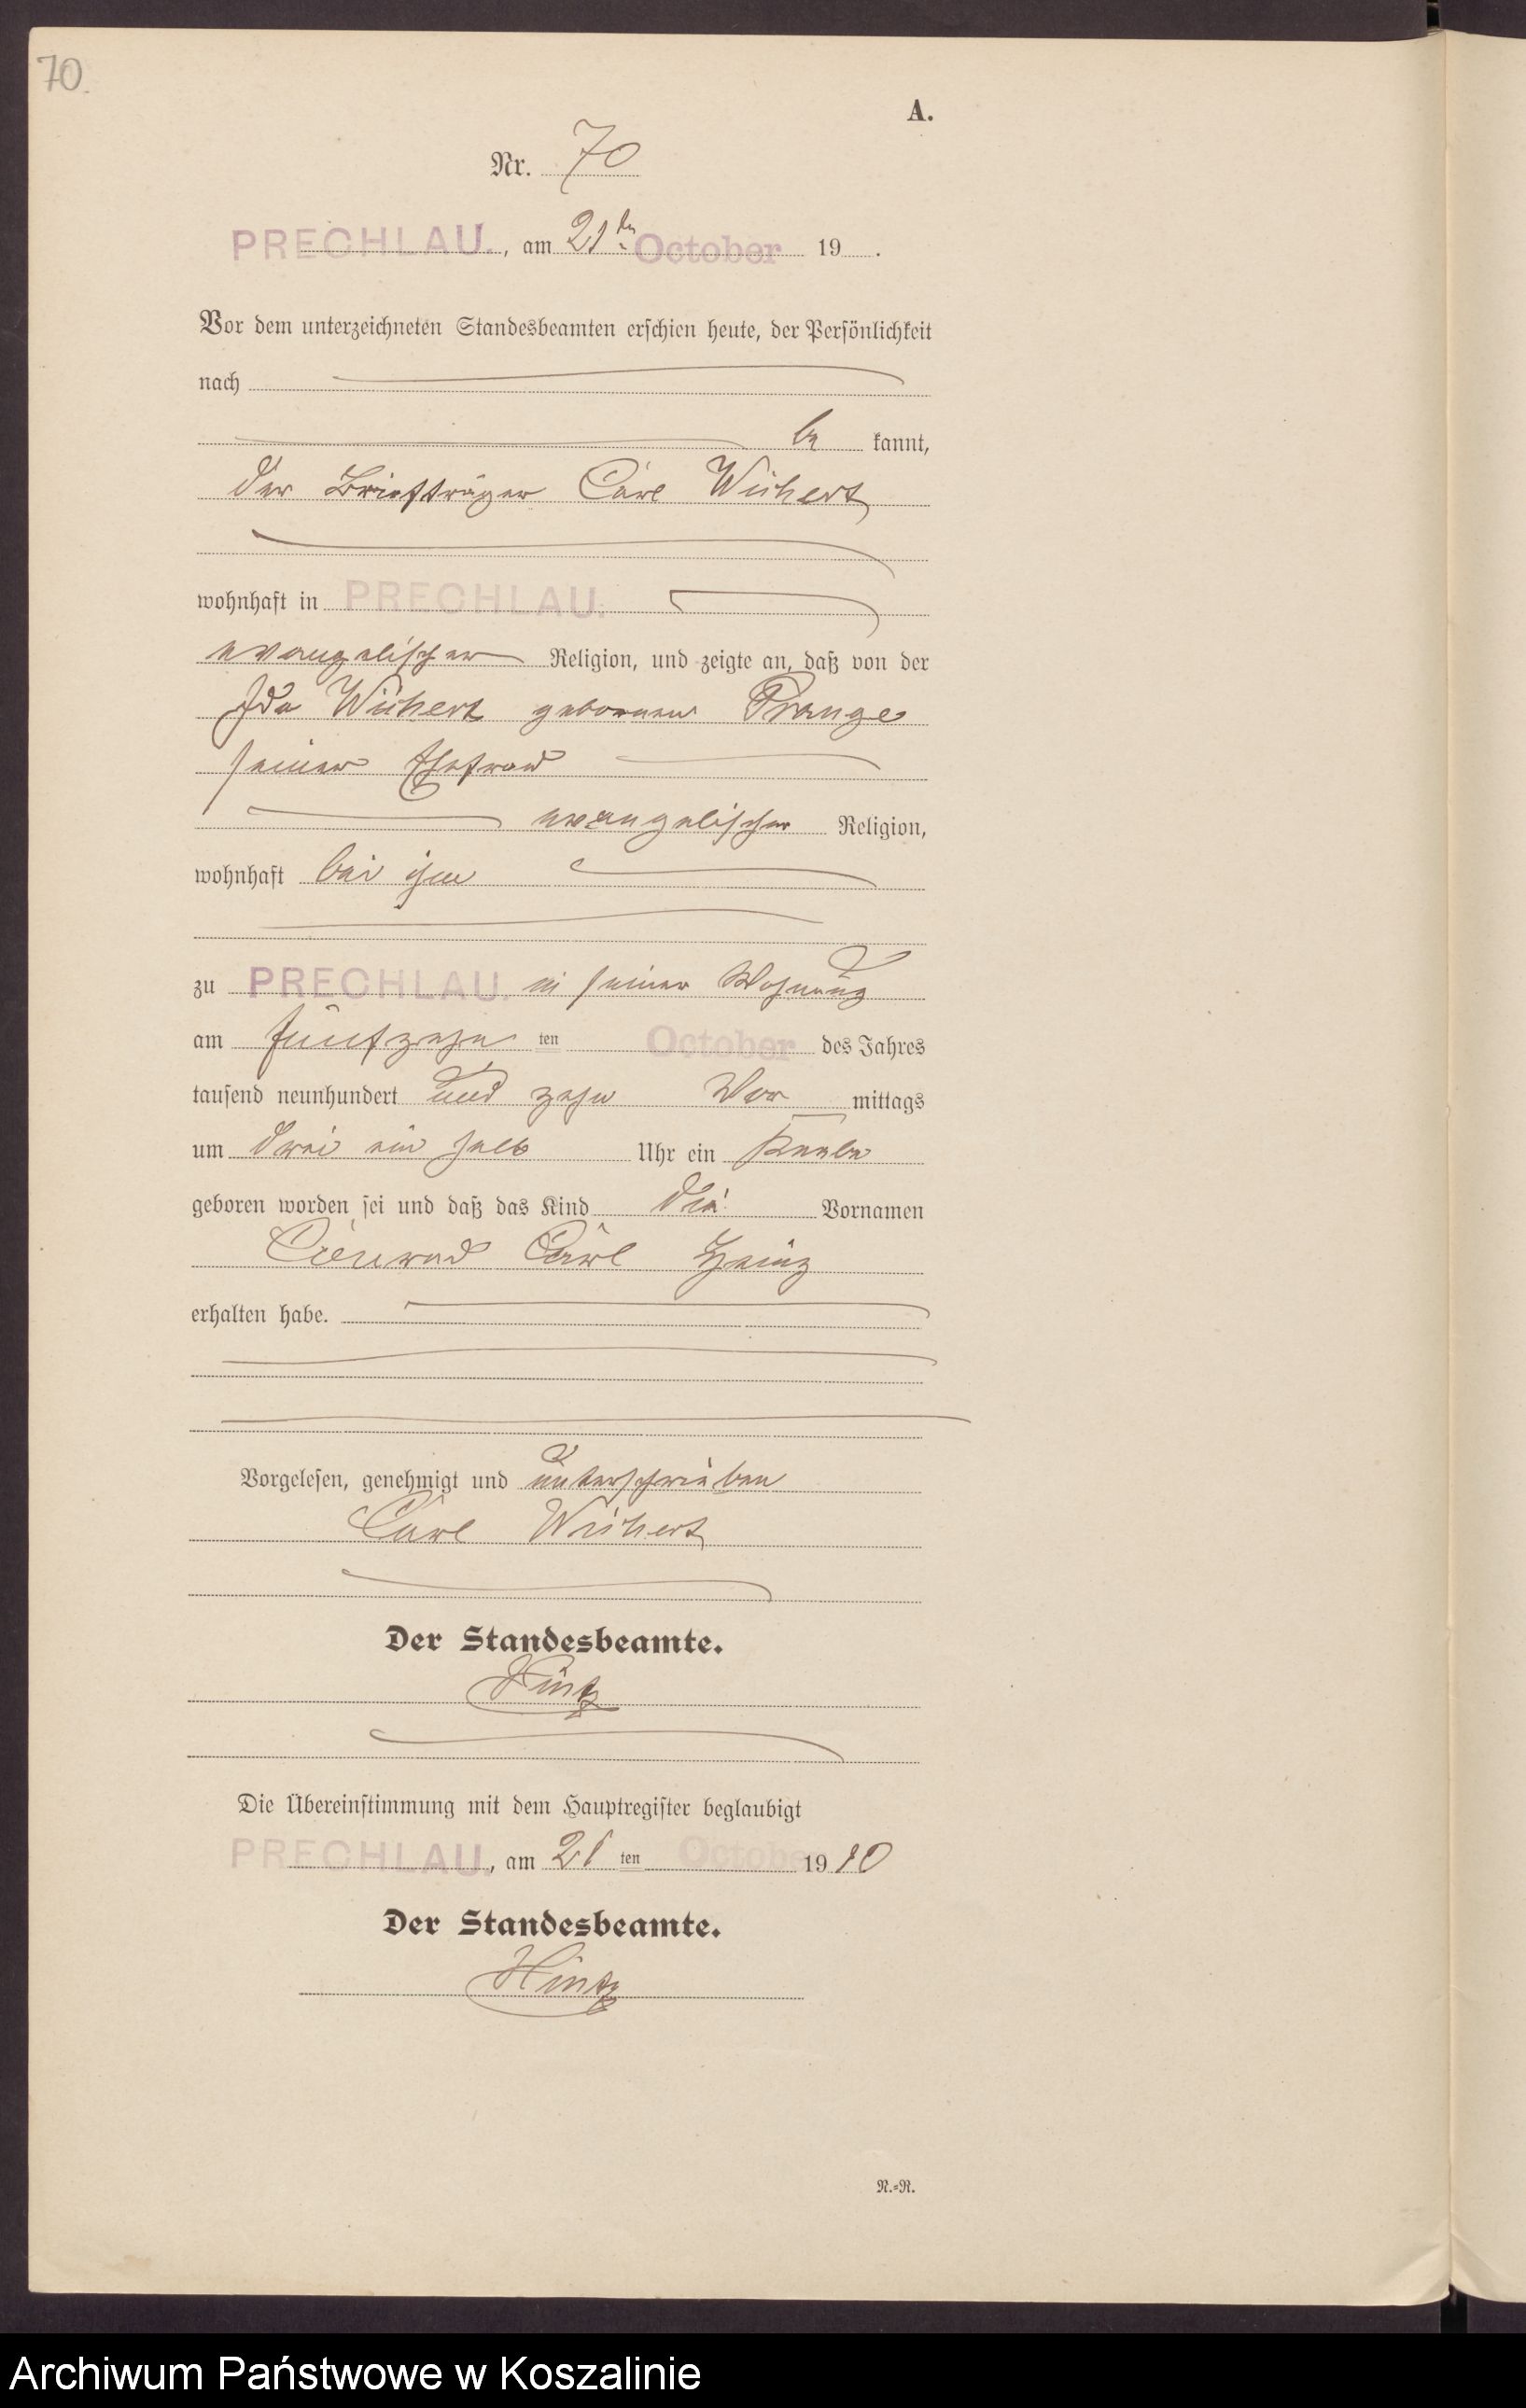 70.
A.
Nr. 70
PRECHLAU., am 21ten October 19 .
Vor dem unterzeichneten Standesbeamten erschien heute, der Persönlichkeit
nach
be kannt,
der Briefträger Carl Wichert
wohnhaft in PRECHLAU.
evangelischer Religion, und zeigte an, daß von der
Ida Wichert geborenen Prange
seiner Ehefrau
evangelischer Religion,
wohnhaft bei ihm
zu PRECHLAU. in seiner Wohnung
am fünfzehn ten October des Jahres
tausend neunhundert und zehn Vor mittags
um drei ein halb Uhr ein Knabe
geboren worden sei und daß das Kind die Vornamen
Conrad Carl Heinz
erhalten habe.
Vorgelesen, genehmigt und unterschrieben
Carl Wichert
Der Standesbeamte.
Hintz
Die Übereinstimmung mit dem Hauptregister beglaubigt
PRECHLAU., am 21 ten October 19 10
Der Standesbeamte.
Hintz
N.=R.
Archiwum Państwowe w Koszalinie